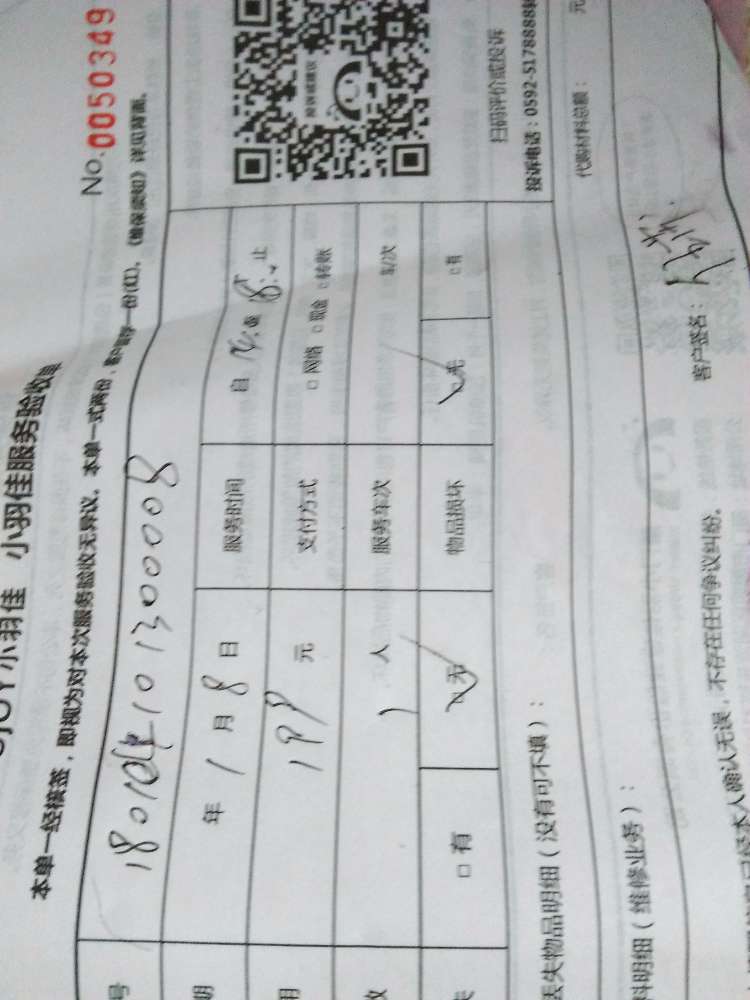 No.0050349
小羽佳 小羽佳服务验收单
本单一经接签，即视为对本次服务验收无异议。本单一式两份，客户留存一份(红)。《维保须知》详见背面。
号
期 年 1 月 8 日 服务时间 自 至 止
用 198 元 支付方式 □ 网络 □ 现金 □ 转账
数 1 人 服务车次 车/次
失 □ 有 □ 无 物品损坏 □ 无 □ 有
投诉或建议
扫码评价或投诉
投诉电话：0592-5178888转
丢失物品明细（没有可不填）：
料明细（维修业务）：
代购材料总额： 元
客户签名：
本人确认无误，不存在任何争议纠纷。